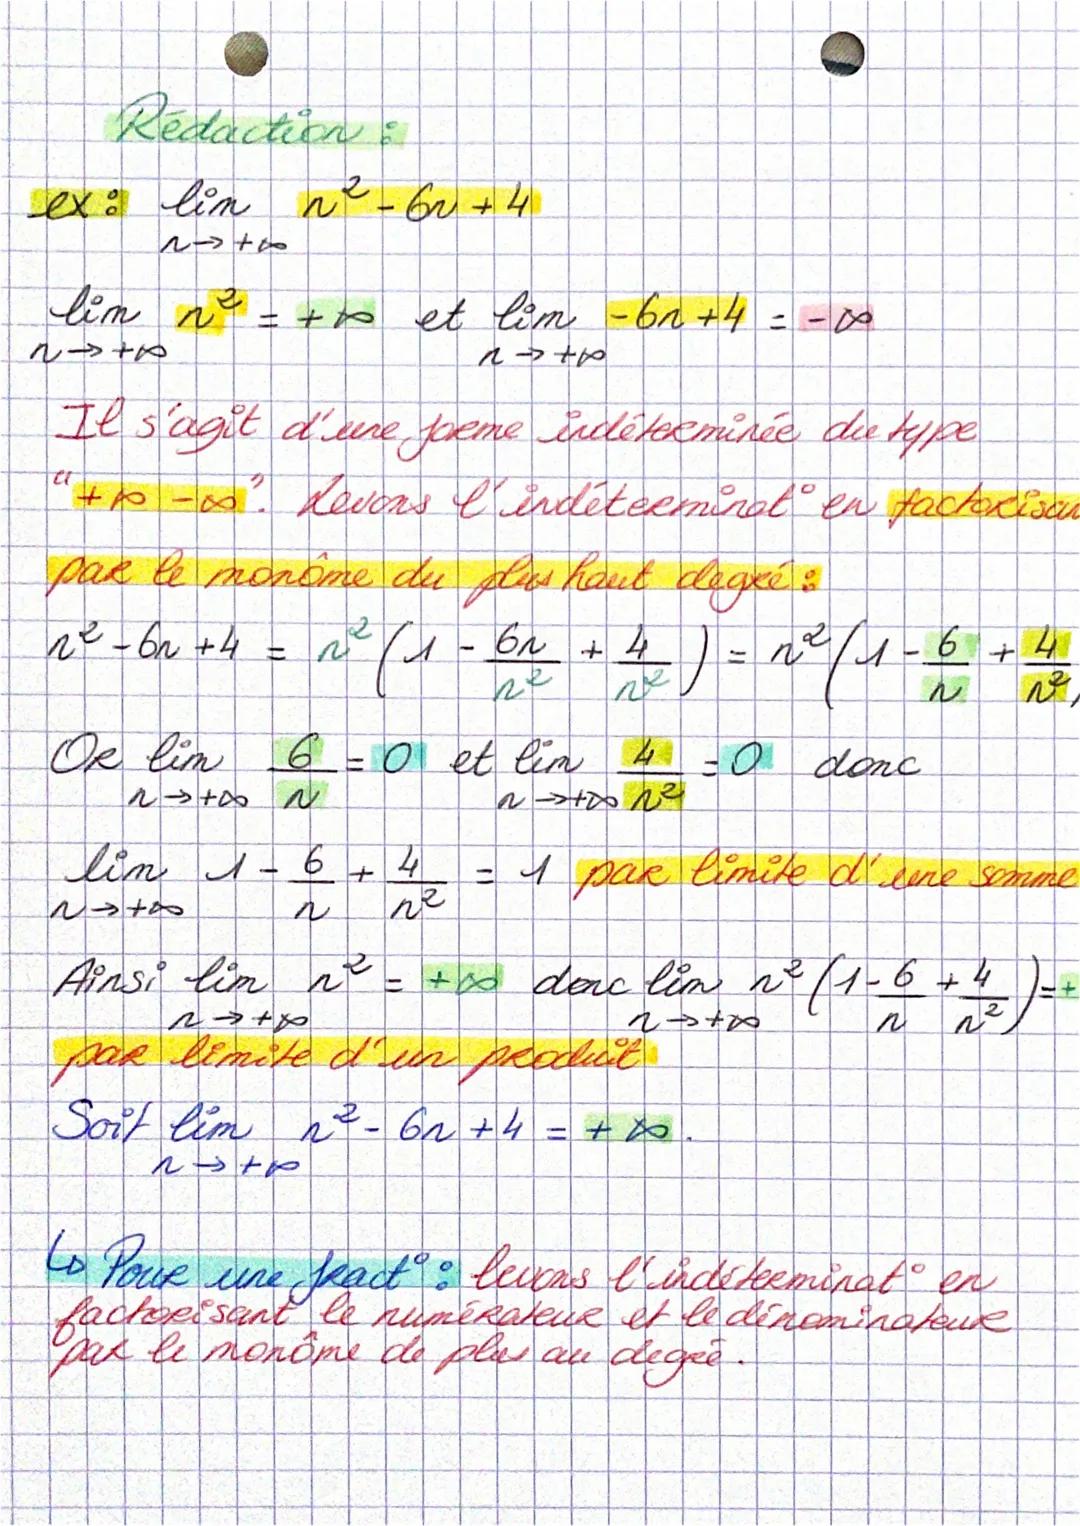 Rédaction :
ex : lim n² - 6n + 4
n → +∞
lim n² = +∞ et lim -6n + 4 = -∞
n → +∞ n → +∞
Il s'agit d'une forme indéterminée du type
"+∞ -∞". Levons l'indéterminat° en factorisan
par le monôme du plus haut degré :
n² - 6n + 4 = n² (1 - 6n/n² + 4/n²) = n² (1 - 6/n + 4/n²)
Or lim 6/n = 0 et lim 4/n² = 0 donc
n → +∞ n → +∞
lim 1 - 6/n + 4/n² = 1 par limite d'une somme
n → +∞
Ainsi lim n² = +∞ donc lim n² (1 - 6/n + 4/n²) = +
n → +∞ n → +∞
par limite d'un produit
Soit lim n² - 6n + 4 = +∞.
n → +∞
↳ Pour une fract° : levons l'indéterminat° en
factorisant le numérateur et le dénominateur
par le monôme de plus au degré.